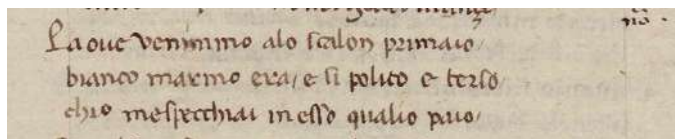 La oue venimmo alo scalon primaio
bianco marmo era / e si polito e terso
chio mespecchiai in esso qualio paio